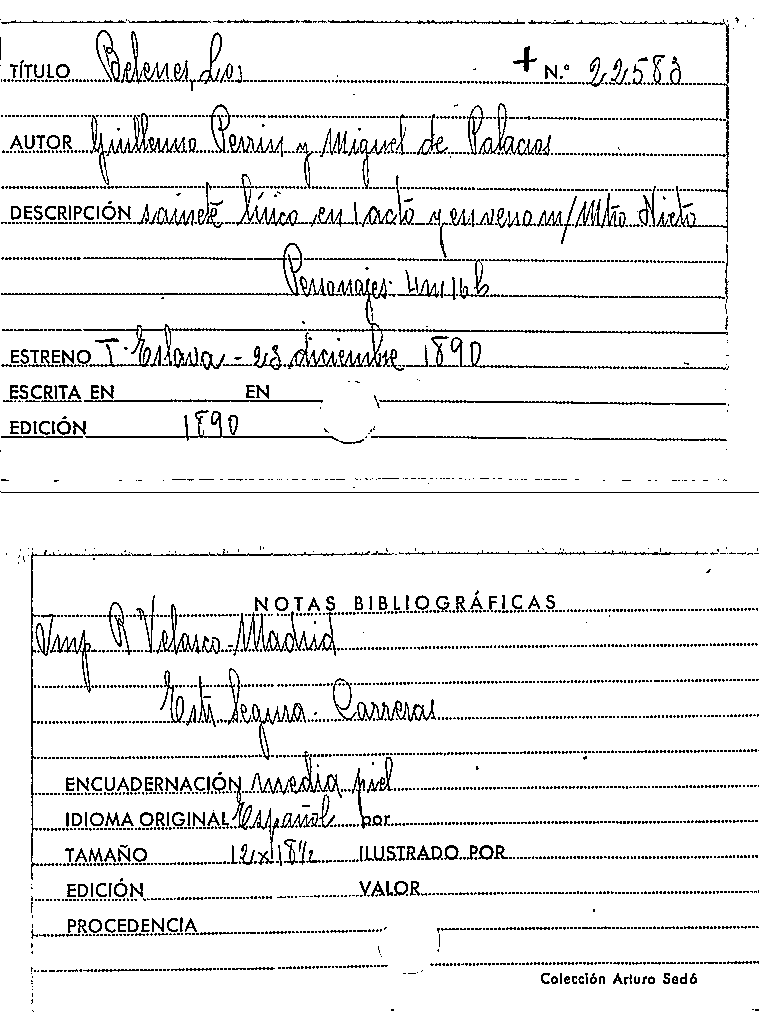 TÍTULO Belenes, Los + N.° 22583
AUTOR Guillermo Perrin y Miguel de Palacios
DESCRIPCIÓN sainete lírico en 1 acto y en verso m/ Mtro Nieto
Personajes: 4m 16h
ESTRENO T. Eslava - 23 diciembre 1890
ESCRITA EN EN
EDICIÓN 1890
NOTAS BIBLIOGRÁFICAS
Imp R Velasco - Madrid
Estr Segura - Carreras
ENCUADERNACIÓN media piel
IDIOMA ORIGINAL Español por
TAMAÑO 12x18½ ILUSTRADO POR
EDICIÓN VALOR
PROCEDENCIA
Colección Arturo Sedó